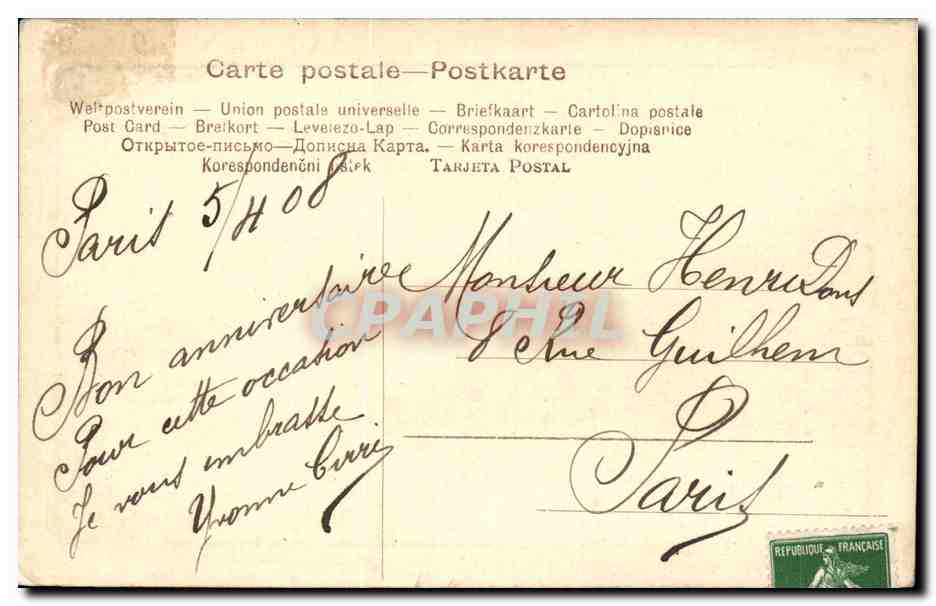 Carte postale—Postkarte
Weltpostverein — Union postale universelle — Briefkaart — Cartolina postale
Post Card — Brefkort — Levelezo-Lap — Correspondenzkarte — Dopisnice
Открытое-письмо—Дописна Карта. — Karta korespondencyjna
Korespondenčni listek TARJETA POSTAL
Paris 5/4 08
Bon anniversaire
Pour cette occasion
Je vous embrasse
Yvonne
Monsieur Henri Dous
8 Rue Guilhem
Paris
CPAPHIL
REPUBLIQUE FRANÇAISE